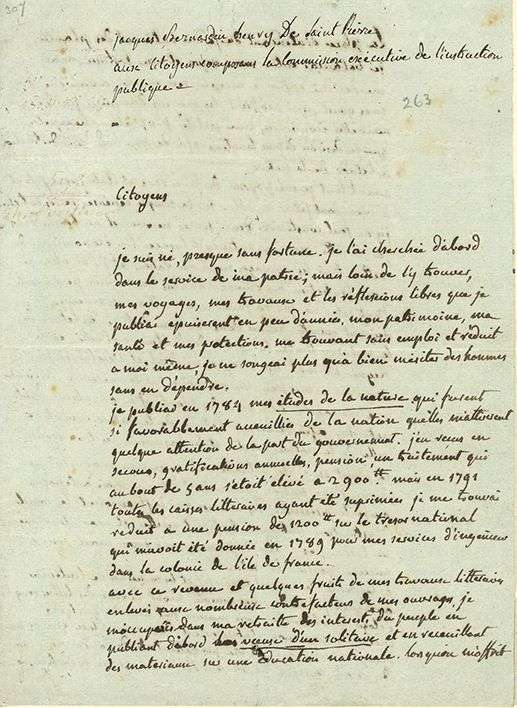 307
jacques Bernardin henry De Saint Pierre
aux Citoyens composans la Commission exécutive de l'instruction
publique
263
Citoyens
je suis né, presque sans fortune. je l'ai cherchée d'abord
dans le service de ma patrie; mais loin de l'y trouver,
mes voyages, mes travaux et les réflexions libres que je
publiai epuiserent en peu d'années, mon patrimoine, ma
santé et mes protections. me trouvant sans emploi et réduit
a moi même, je ne songeai plus qu'a bien mériter des hommes
sans en dépendre.
je publiai en 1784 mes études de la nature qui furent
si favorablement accueillies de la nation quelles m'attirerent
quelque attention de la part du gouvernement. j'en reçus en
secours, gratifications annuelles, pension, un traitement qui
au bout de 5 ans s'etoit elevé a 2900 tt mais en 1791
toutes les caisses litteraires ayant été suprimées je me trouvai
reduit a une pension de 1200 tt sur le tresor national
qui m'avoit été donnée en 1789 pour mes services d'ingenieur
dans la colonie de l'ile de france.
avec ce revenu et quelques fruits de mes travaux litteraires
enlevés aux nombreux contrefacteurs de mes ouvrages, je
m'occupai dans ma retraite des interets du peuple en
publiant d'abord les vœux d'un solitaire et en recueillant
des materiaux sur une éducation nationale. lorsqu'on m'offrit